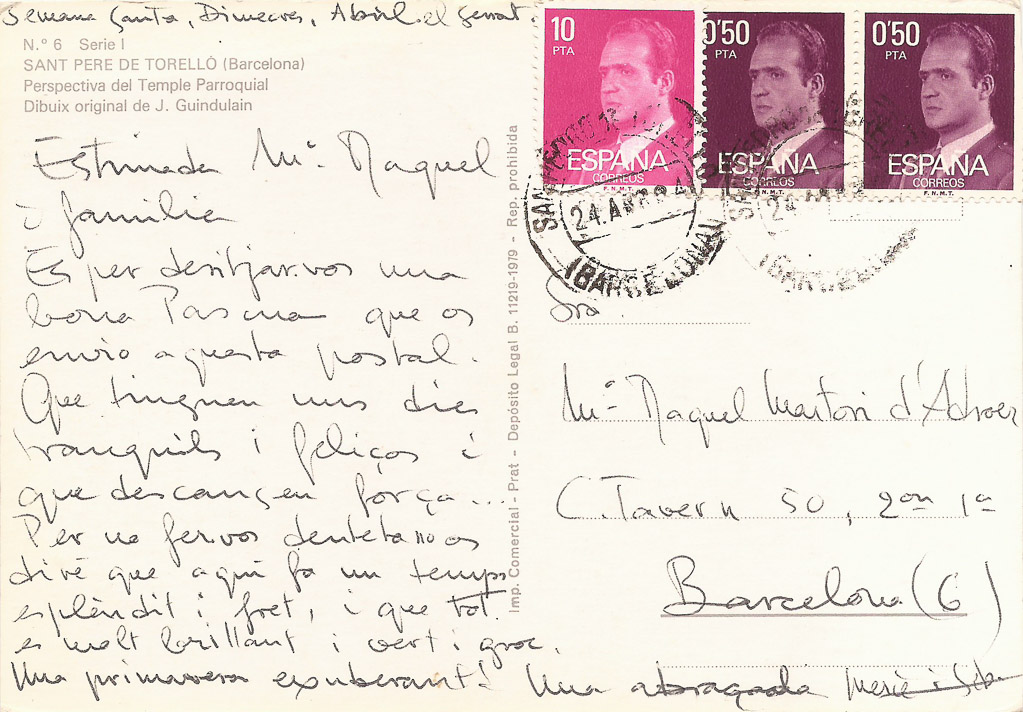 Semana Santa, Dimecres, Abril. el Serrat.
N.º 6 Serie I
SANT PERE DE TORELLÓ (Barcelona)
Perspectiva del Temple Parroquial
Dibuix original de J. Guindulain
Estimada Mª. Raquel
i família
És per desitjar-vos una
bona Pascua que os
envio aquesta postal.
Que tinguen uns dies
tranquils i feliços i
que descansen força...
Per no fervos denteta no os
diré que aquí fa un temps
esplèndit i fret, i que tot
es molt brillant i vert i groc.
Una primavera exuberant! Una abraçada
Imp. Comercial - Prat - Depósito Legal B. 11219-1979 - Rep. prohibida
10
PTA
ESPAÑA
CORREOS
F.N.M.T.
0'50
PTA
ESPAÑA
CORREOS
F.N.M.T.
0'50
PTA
ESPAÑA
CORREOS
F.N.M.T.
24.ABR
(BARCELONA)
24
Sra.
Mª. Raquel Martori d'Adroer
C. Tavern 50, 2on 1a
Barcelona (6)